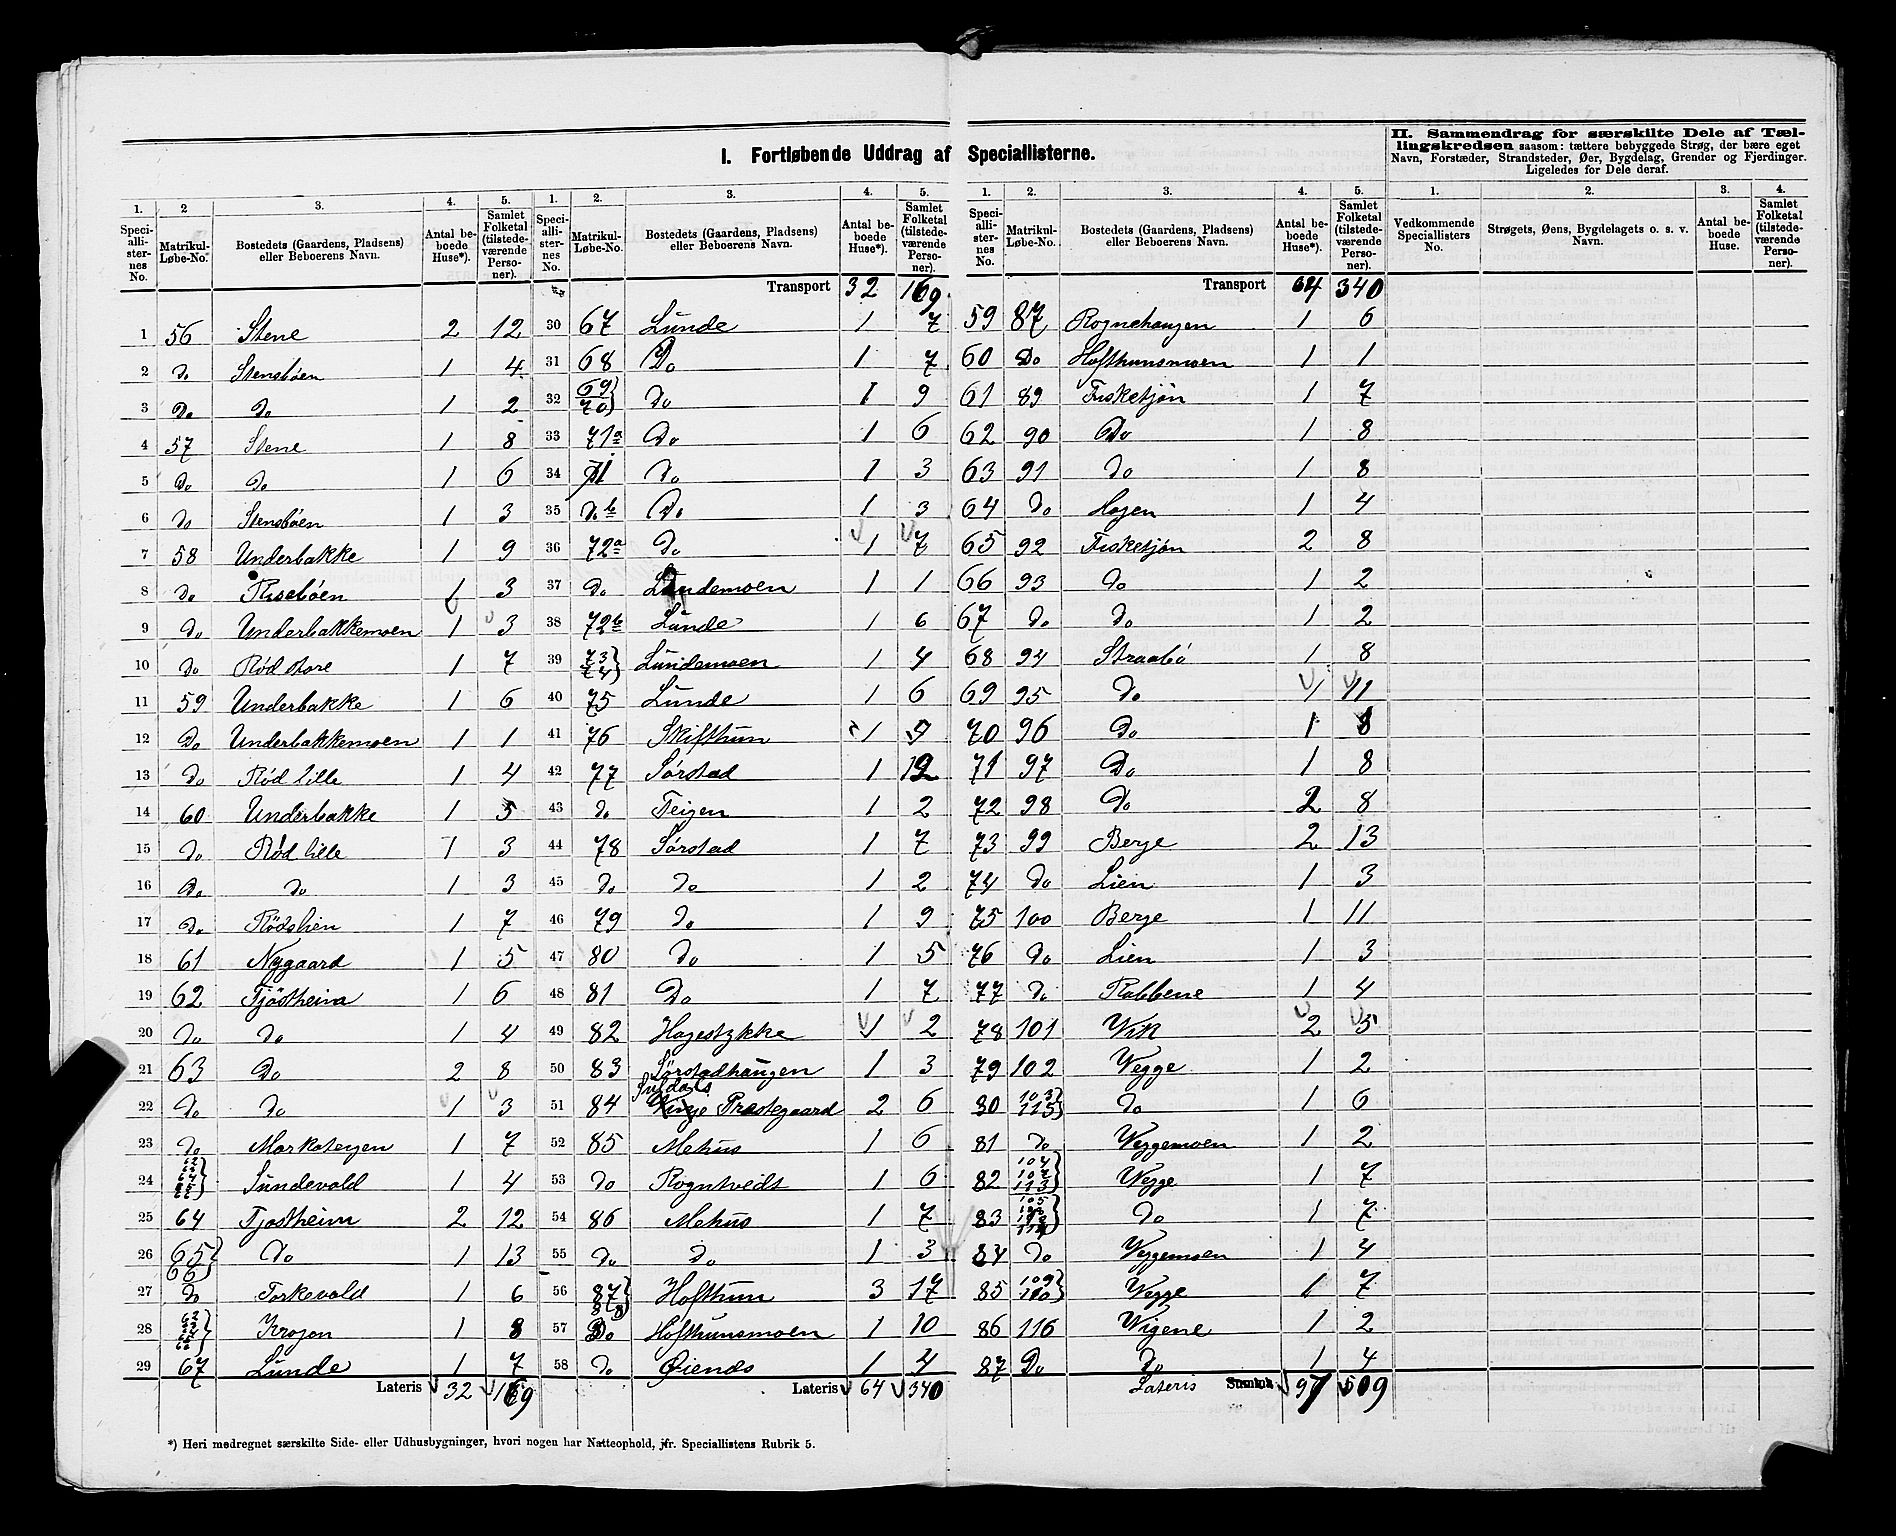 I. Fortløbende Uddrag af Speciallisterne.
II. Sammendrag for særskilte Dele af Tællingskredsen saasom: tættere bebyggede Strøg, der bære eget
Navn, Forstæder, Strandsteder, Øer, Bygdelag, Grender og Fjerdinger.
Ligeledes for Dele deraf.
1. 2 3. 4. 5.
Speciallisternes No. Matrikul-Løbe-No. Bostedets (Gaardens, Pladsens) eller Beboerens Navn. Antal beboede Huse*). Samlet Folketal (tilstedeværende Personer).
1 56 Stene 2 12
2 Do Stensbøen 1 4
3 Do Do 1 2
4 57 Stene 1 8
5 Do Do 1 6
6 Do Stensbøen 1 3
7 58 Underbakke 1 9
8 Do Risebøen 1 3
9 Do Underbakkemoen 1 3
10 Do Rød store 1 7
11 59 Underbakke 1 6
12 Do Underbakkemoen 1 1
13 Do Rød lille 1 4
14 60 Underbakke 1 5
15 Do Rød lille 1 3
16 Do Do 1 3
17 Do Rødslien 1 7
18 61 Nygaard 1 5
19 62 Tjøstheim 1 6
20 Do Do 1 4
21 63 Do 2 8
22 Do Do 1 3
23 Do Markateigen 1 7
24 Sundevold 1 4
25 64 Tjostheim 2 12
26 65 66 } Do 1 13
27 Do Torkevold 1 6
28 Krogen 1 8
29 67 Lunde 1 7
Lateris 32 169
1. 2. 3. 4. 5.
Speciallisternes No. Matrikul-Løbe-No. Bostedets (Gaardens, Pladsens) eller Beboerens Navn. Antal beboede Huse*). Samlet Folketal (tilstedeværende Personer).
Transport 32 169
30 67 Lunde 1 7
31 68 Do 1 7
32 69 70 } Do 1 9
33 71a Do 1 6
34 71 Do 1 3
35 Do b Do 1 3
36 72a Do 1 7
37 Do Lundemoen 1 1
38 72b Lunde 1 6
39 73 74 } Lundemoen 1 4
40 75 Lunde 1 6
41 76 Skifthun 1
42 77 Sørstad 1 12
43 Do Teigen 1 2
44 78 Sørstad 1 7
45 Do Do 1 2
46 79 Do 1 9
47 80 Do 1 5
48 81 Do 1 7
49 82 Hagestykke 1 2
50 83 Sørstadhaugen 1 3
51 84 Suldals Præstegaard 2 6
52 85 Mehus 1 6
53 Do Rogntvedt 1 6
54 86 Mehus 1 7
55 Do Do 1 3
56 87 88 } Hofthun 3 17
57 Do Hofthunsmoen 1 10
58 Do Øiends 1 4
Lateris 64 340
1. 2. 3. 4. 5.
Speciallisternes No. Matrikul-Løbe-No. Bostedets (Gaardens, Pladsens) eller Beboerens Navn. Antal beboede Huse*). Samlet Folketal (tilstedeværende Personer).
Transport 64 340
59 87 Rognehaugen 1 6
60 Do Hofthunsmoen 1 1
61 89 Fisketjøn 1 7
62 90 Do 1 8
63 91 Do 1 8
64 Do Hagen 1 4
65 92 Fisketjøn 2 8
66 93 Do 1 2
67 Do Do 1 2
68 94 Straabø 1 8
69 95 Do 1 11
70 96 Do 1 8
71 97 Do 1 8
72 98 Do 2 8
73 99 Berge 2 13
74 Do Lien 1 3
75 100 Berge 1 11
76 Do Lien 1 3
77 Do Rabbene 1 4
78 101 Vik 2 5
79 102 Vegge 1 2
80 103 115 } Do 1 6
81 Do Veggemoen 1 2
82 104 107 113 } Vegge 1 7
83 Do 1 7
84 Do Veggemoen 1 4
85 109 110 } Vegge 1 7
86 116 Vigene 1 2
87 Do Do 1 4
Lateris 97 509
1. 2. 3. 4.
Vedkommende Speciallisters No. Strøgets, Øens, Bygdelagets o. s. v. Navn. Antal beboede Huse. Samlet Folketal (tilstedeværende Personer).
*) Heri medregnet særskilte Side- eller Udhusbygninger, hvori nogen har Natteophold, jfr. Speciallistens Rubrik 5.